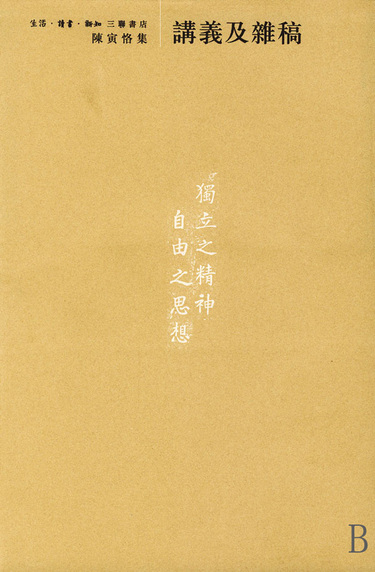 生活·讀書·新知 三聯書店
陳寅恪集
講義及雜稿
獨立之精神
自由之思想
B